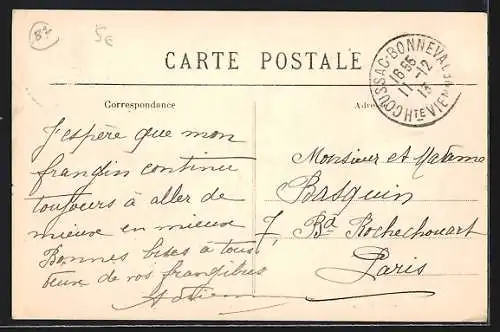 87
5€
CARTE POSTALE
COUSSAC-BONNEVAL
16 55
11-12
13
HTE VIENNE
Correspondance
J'espère que mon
frangin continue
toujours à aller de
mieux en mieux
Bonnes bises à tous
deux de vos frangibus
Adrien
Monsieur et Madame
Basquin
7, Bd Rochechouart
Paris